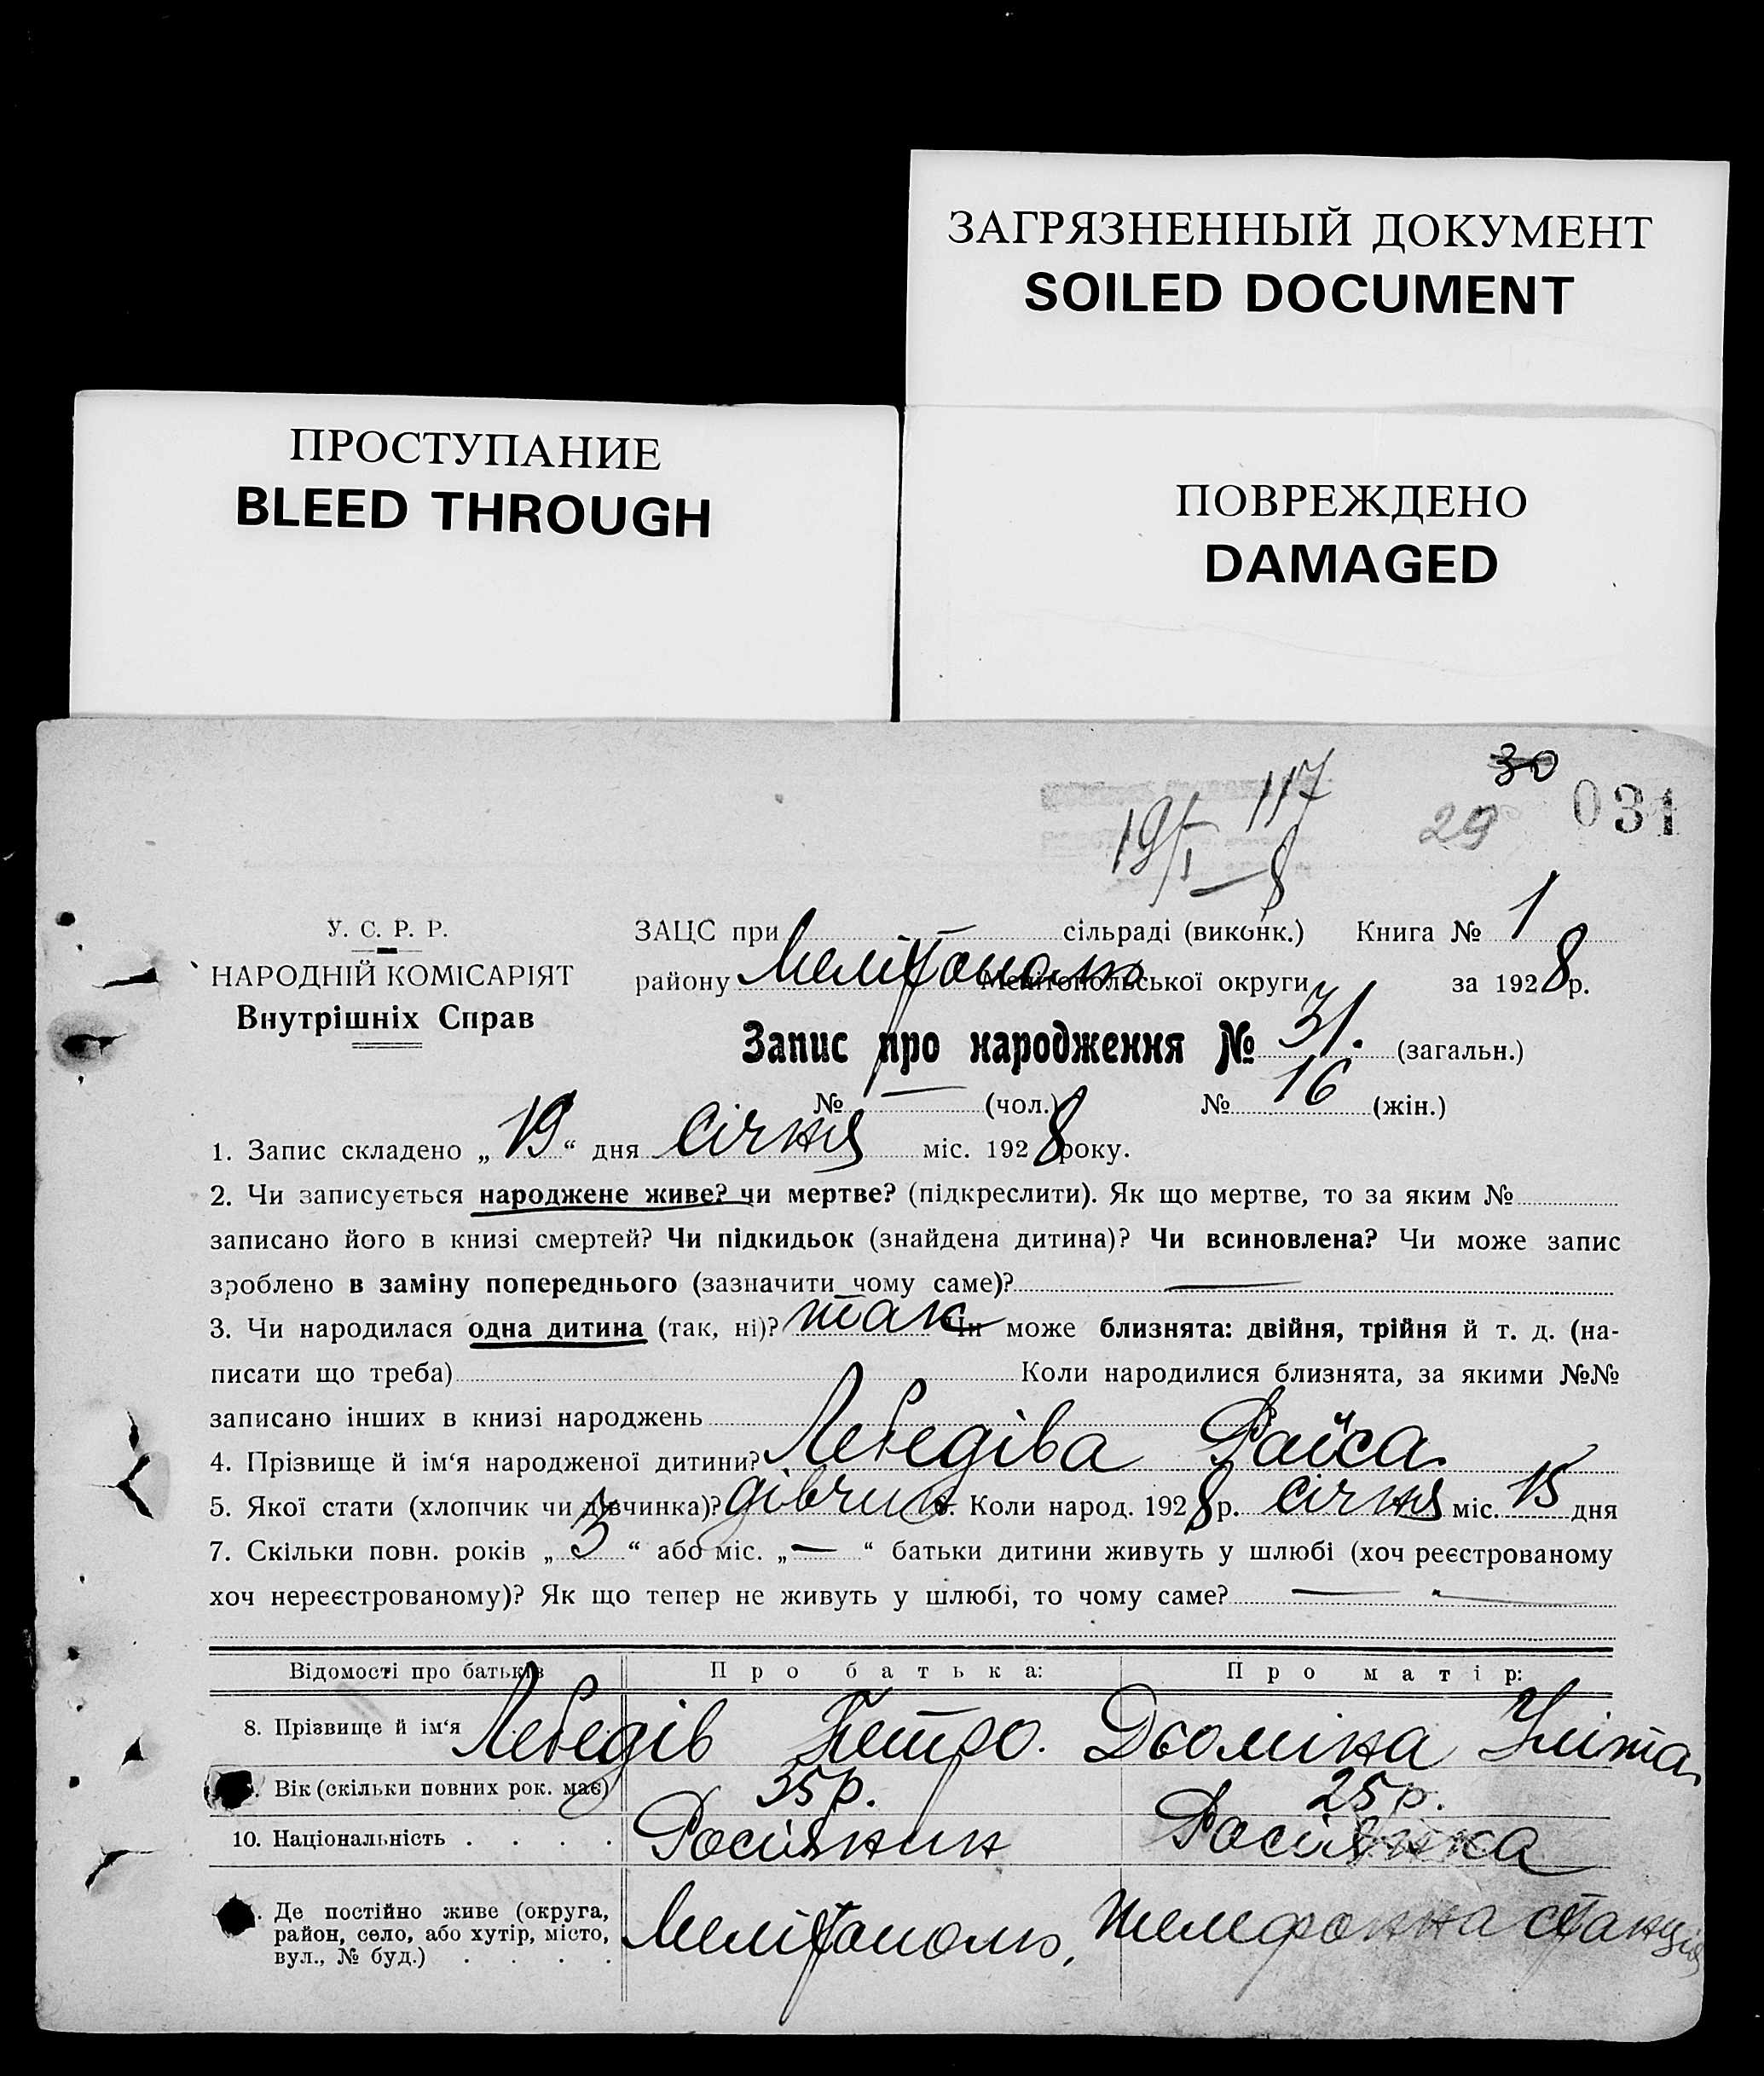 ЗАГРЯЗНЕННЫЙ ДОКУМЕНТ
SOILED DOCUMENT
ПРОСТУПАНИЕ
BLEED THROUGH
ПОВРЕЖДЕНО
DAMAGED
30
117
19/I – 8
29
031
У. С. Р. Р.
НАРОДНІЙ КОМІСАРІЯТ
Внутрішніх Справ
ЗАЦС при сільраді (виконк.) Книга № 1
району Мелітополь Мелітопольської округи за 1928 р.
Запис про народження № 31. (загальн.)
№ — (чол.) № 16 (жін.)
1. Запис складено „19“ дня Січня міс. 1928 року.
2. Чи записується народжене живе? чи мертве? (підкреслити). Як що мертве, то за яким №
записано його в книзі смертей? Чи підкидьок (знайдена дитина)? Чи всиновлена? Чи може запис
зроблено в заміну попереднього (зазначити чому саме)? —
3. Чи народилася одна дитина (так, ні)? так Чи може близнята: двійня, трійня й т. д. (на-
писати що треба) Коли народилися близнята, за якими №№
записано інших в книзі народжень
4. Прізвище й ім‘я народженої дитини? Лебедіва Раїса.
5. Якої стати (хлопчик чи дівчинка)? дівчин. Коли народ. 1928 р. Січня міс. 15 дня
7. Скільки повн. років „3“ або міс. „—“ батьки дитини живуть у шлюбі (хоч реєстрованому
хоч нереєстрованому)? Як що тепер не живуть у шлюбі, то чому саме? —
Відомості про батьків Про батька: Про матір:
8. Прізвище й ім‘я Лебедів Петро. Дьоміна
Вік (скільки повних рок. має) 35 р. 25 р.
10. Національність . . . . Росіянин Росіянка
Де постійно живе (округа,
район, село, або хутір, місто,
вул., № буд.) . . . . Мелітополь, телефонна станція